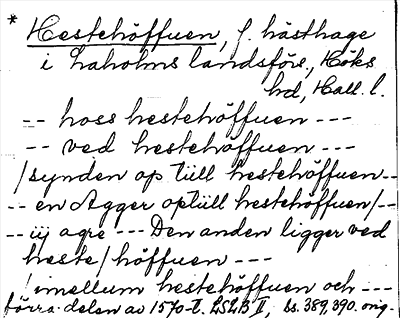 * Hestehöffuen, f. hästhage
i Laholms landsförs, Höks
hd, Hall. l.
-- hoss hestehöffuen ---
-- ved hestehöffuen ---
/synden op tüll hestehöffuen--
-- en Agger optüll hestehöffuen/--
-- iij agre --- Den anden ligger ved
heste/höffuen ---
/imellum hestehöffuen och ---
förra delen av 1570-t. LSLB II, bs. 389, 390. orig.